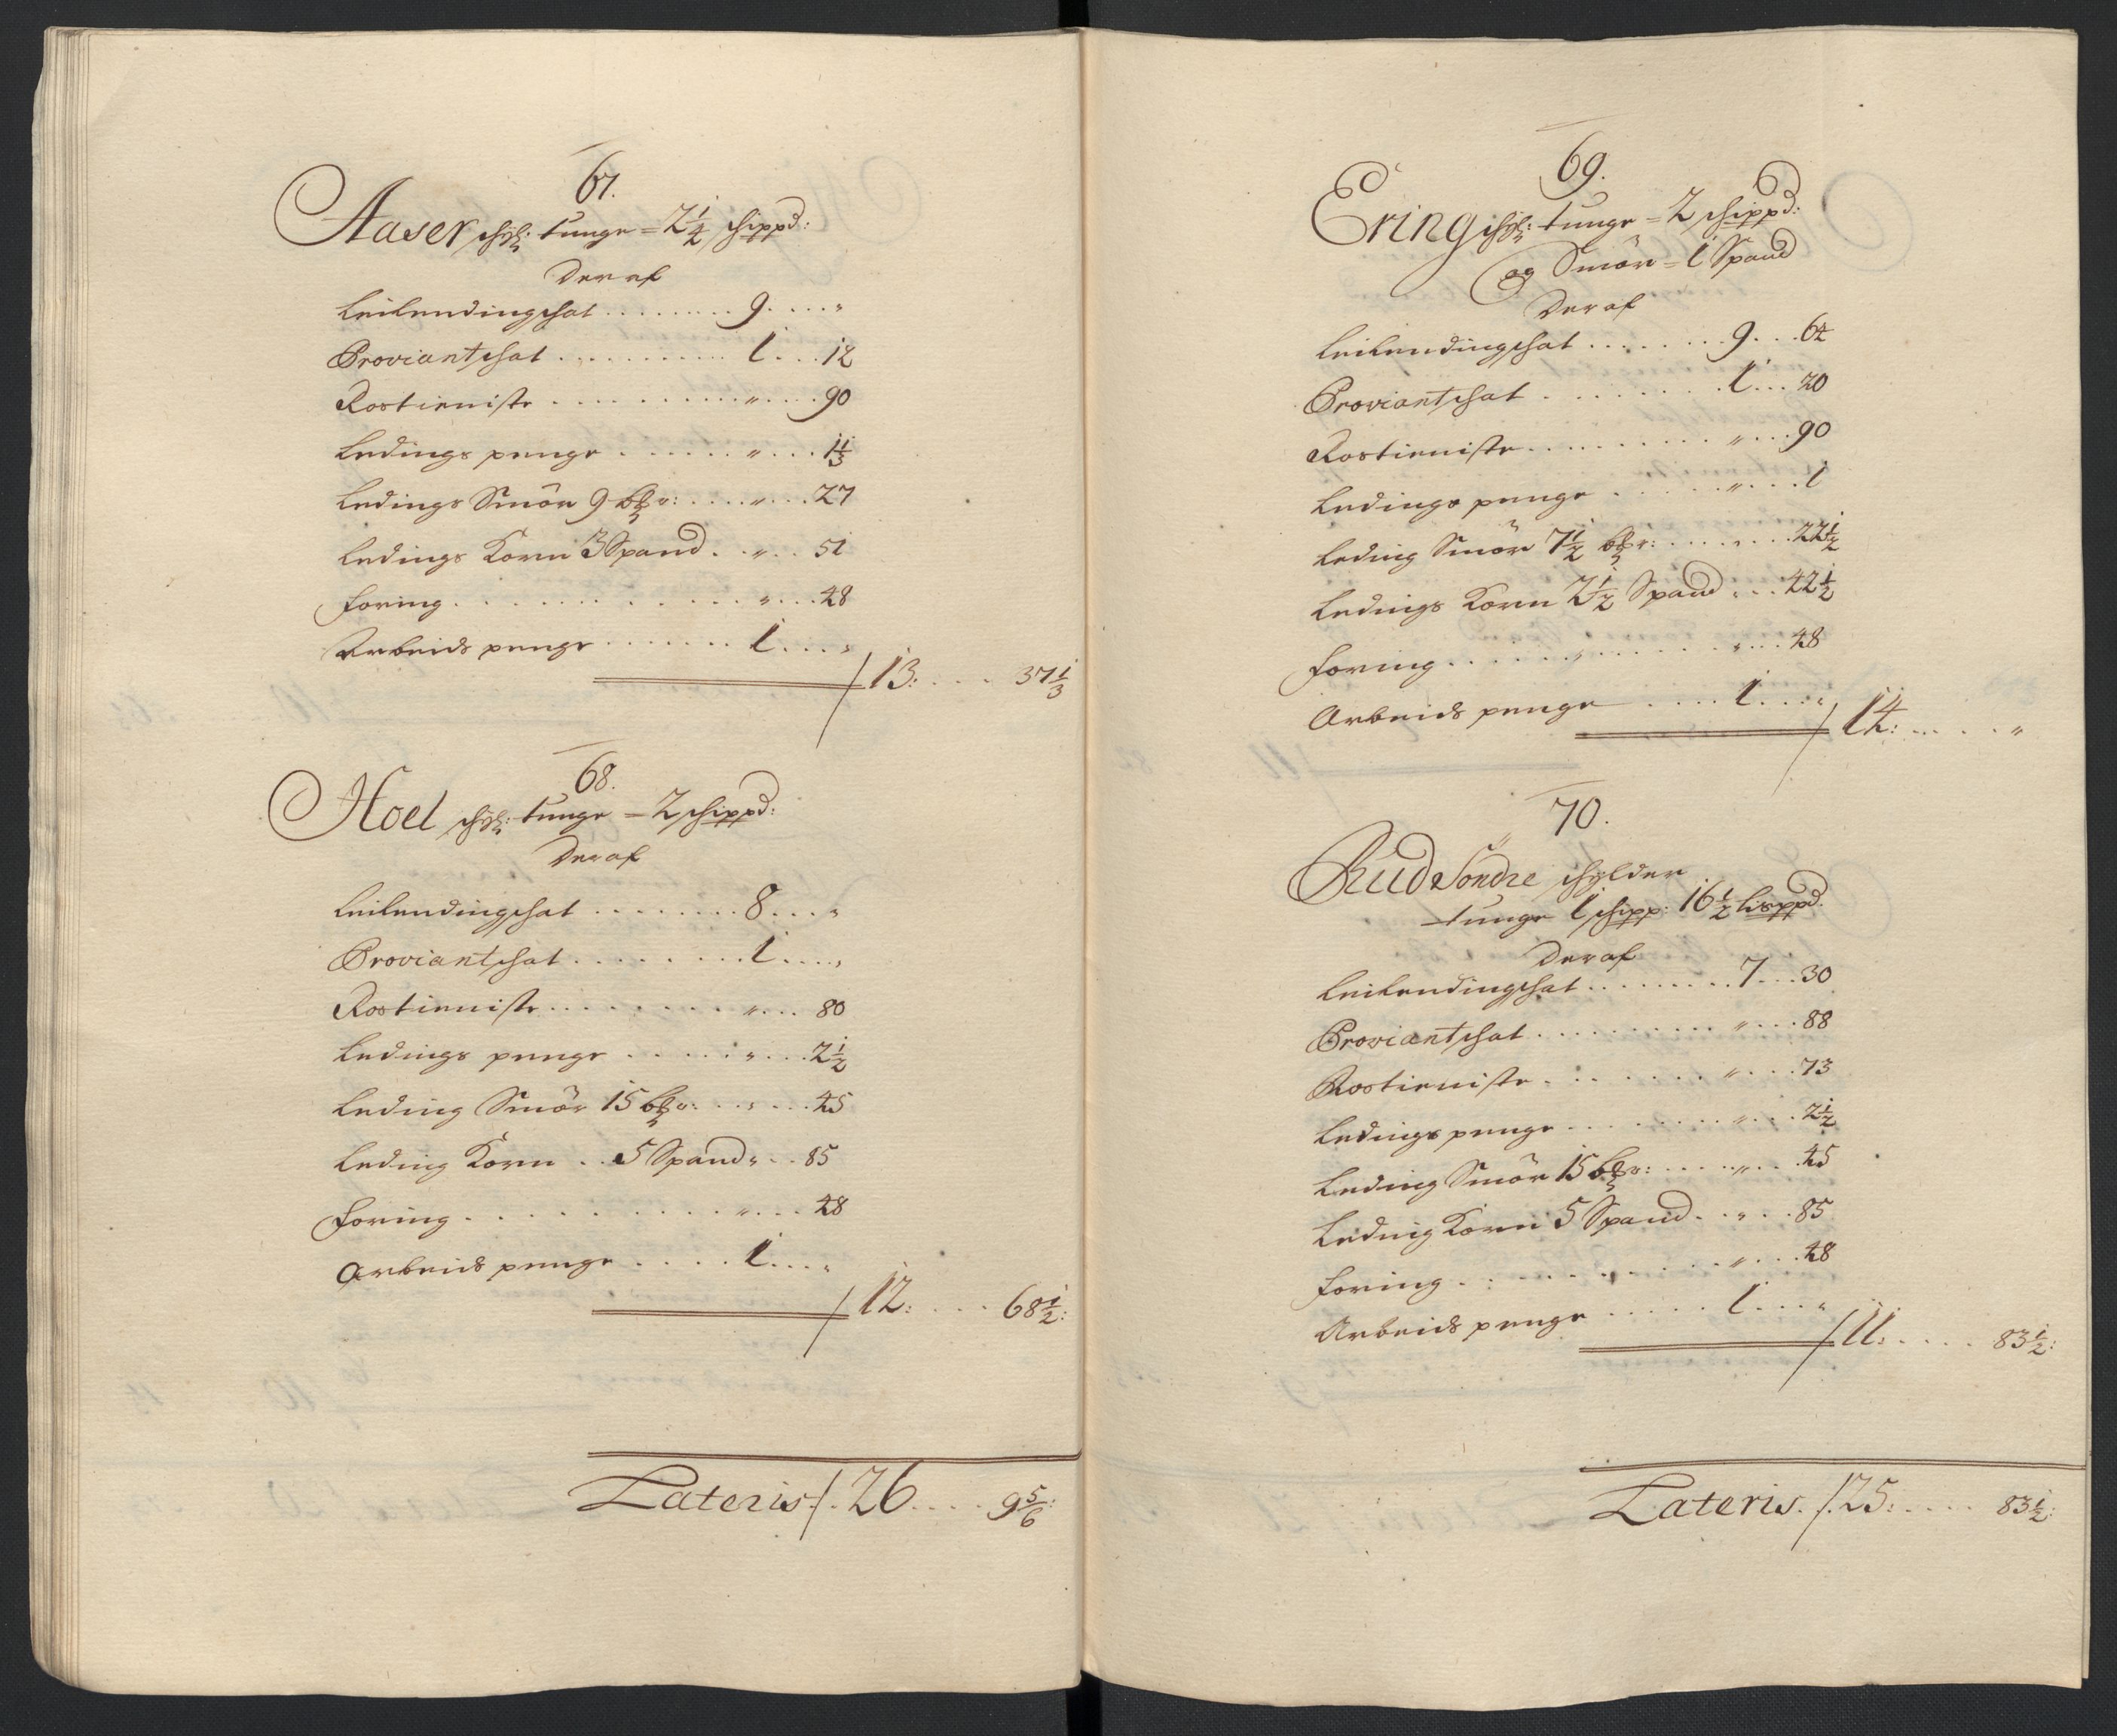 67.
Aaser schyl: tunge = 2 1/4 schippd:
Der af
Leilendingschat ........ 9. ... "
Proviantschat ........... 1 ... 12
Rostieniste .......... " .... 90
Ledings penge ...... " ... 1 1/3
Ledings Smör 9 bpr: .... " ... 27
Ledings Korn 3 Spand . . " .. 51
foring ............ " ... 48
Arbeids penge ....... 1 ... "
13: ... 37 1/3
68.
Hoel schyl: tunge = 2 schippd:
Der af
Leilendingschat ........ 8 ... "
Proviantschat ........ 1 .... "
Rostieniste ........ " ... 80
Ledings penge ..... " ... 2 1/2
Leding Smör 15 bpr: .. " ... 45
Leding Korn .. 5 Spand " .. 85
foring .......... " ... 48
Arbeids penge .... 1 ... "
12: ... 68 1/2:
Lateris . 26 .... 9 5/6:
69.
Ering schyl: tunge = 2 schippd:
og Smör = 1 Spand
Der af
Leilendingschat ........ 9 ... 64
Proviantschat ........ 1 ... 20
Rostieniste .......... " ... 90
Ledings penge ...... " ... 1
Leding Smör 7 1/2 bpr: ..... " ... 22 1/2
Ledings Korn 2 1/2 Spand " ... 42 1/2
foring .......... " ... 48
Arbeids penge .... 1 ... "
14: .... "
70.
Rud Söndre schylder
tunge 1 schipp: 16 1/2 Lisppd.
Der af
Leilendingschat ......... 7 ... 30
Proviantschat .......... " ... 88
Rostieniste ........ " ... 73
Ledings penge ........ " ... 2 1/2
Leding Smör 15 bpr: ..... " ... 45
Leding Korn 5 Spand . . " ... 85
foring .......... " ... 48
Arbeids penge ..... 1 ... "
11: .... 83 1/2:
Lateris . 25: .... 83 1/2: